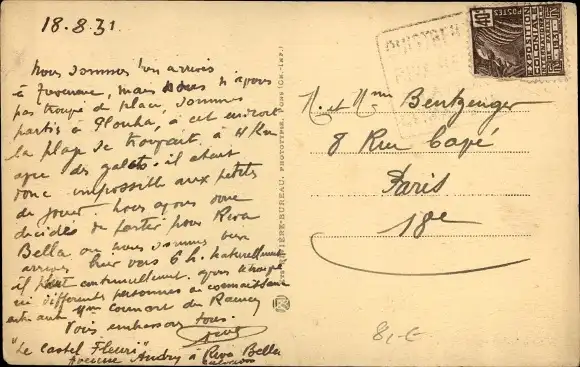 18.8.31
Nous sommes bien arrivés
à mais nous n'ayons
pas trouvé de place, sommes
partis à Plouha, à cet endroit
la plage se trouvait à 4 Km
avec des galets. il était
donc impossible aux petits
de jouer. nous ayons donc
décidés de partir pour Riva
Bella où nous sommes bien
arrivés hier vers 6 h. naturellement
il pleut continuellement.
ici différentes personnes de connaissance
entre autre Mme du Raincy
Vous embrassons tous.
"Le Castel Fleuri"
avenue Andry à Riva Bella
PHOTOTYPIE, PONS (CH.-INF.)
40c
POSTES
EXPOSITION
COLONIALE
INTERNATIONALE
M. et Mme Bentzinger
8 Rue Capé
Paris
18e
8,-€